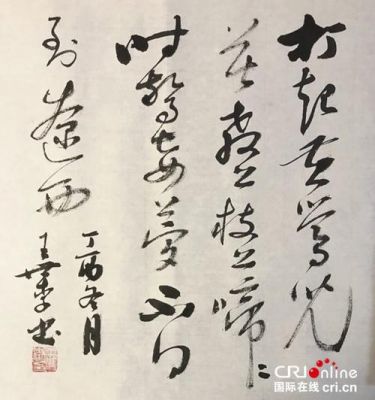 打起黄鶯兒
莫教枝上啼〻
时驚妾夢不得
到遼西
丁酉冬月
CRIonline
国际在线 cri.cn